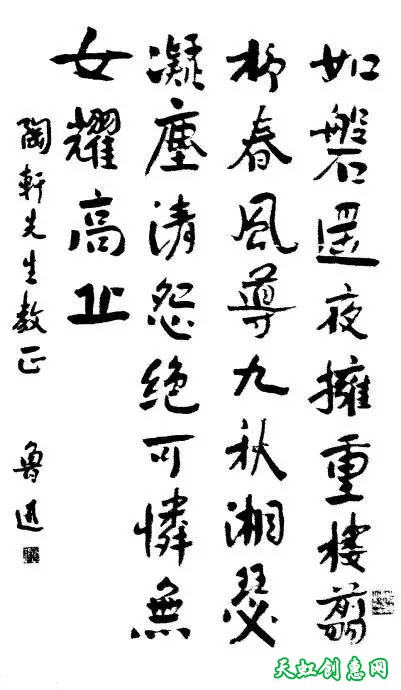 如磐遥夜擁重樓翦
柳春風導九秋湘瑟
凝塵清怨絕可憐無
女耀高丘
陶軒先生教正 魯迅
天虹创惠网